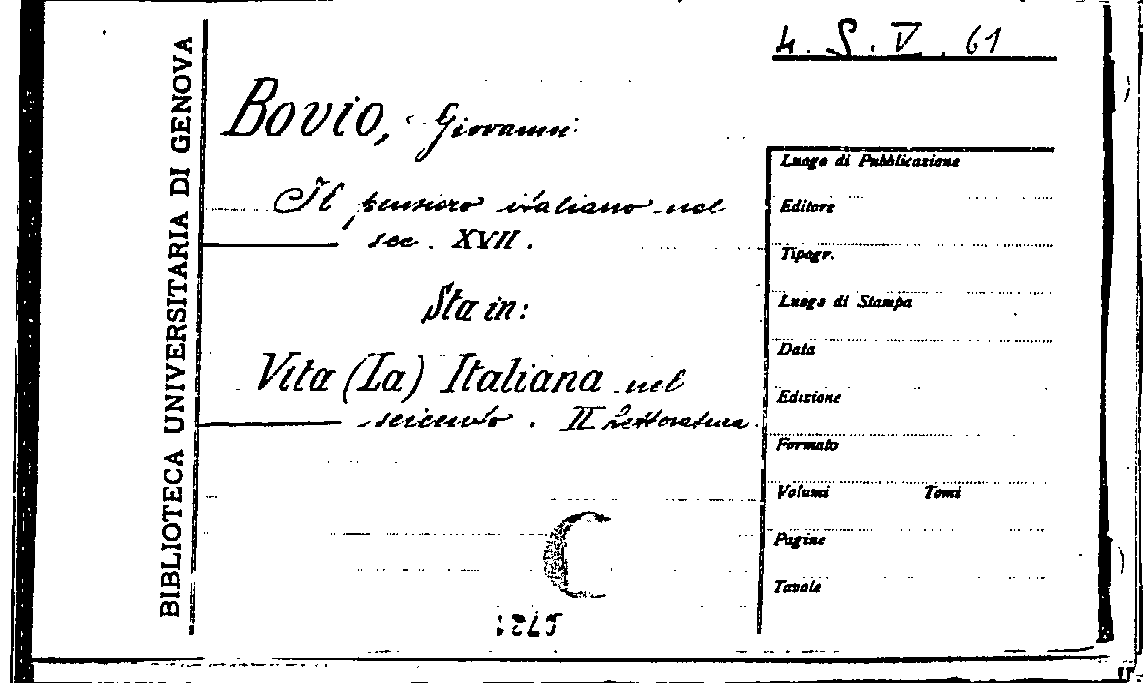 4. S. V. 61
BIBLIOTECA UNIVERSITARIA DI GENOVA
Bovio, Giovanni
Il pensiero italiano nel
sec. XVII.
Sta in:
Vita (La) Italiana nel
seicento. II Letteratura.
Luogo di Pubblicazione
Editore
Tipogr.
Luogo di Stampa
Data
Edizione
Formato
Volumi Tomi
Pagine
Tavole
C